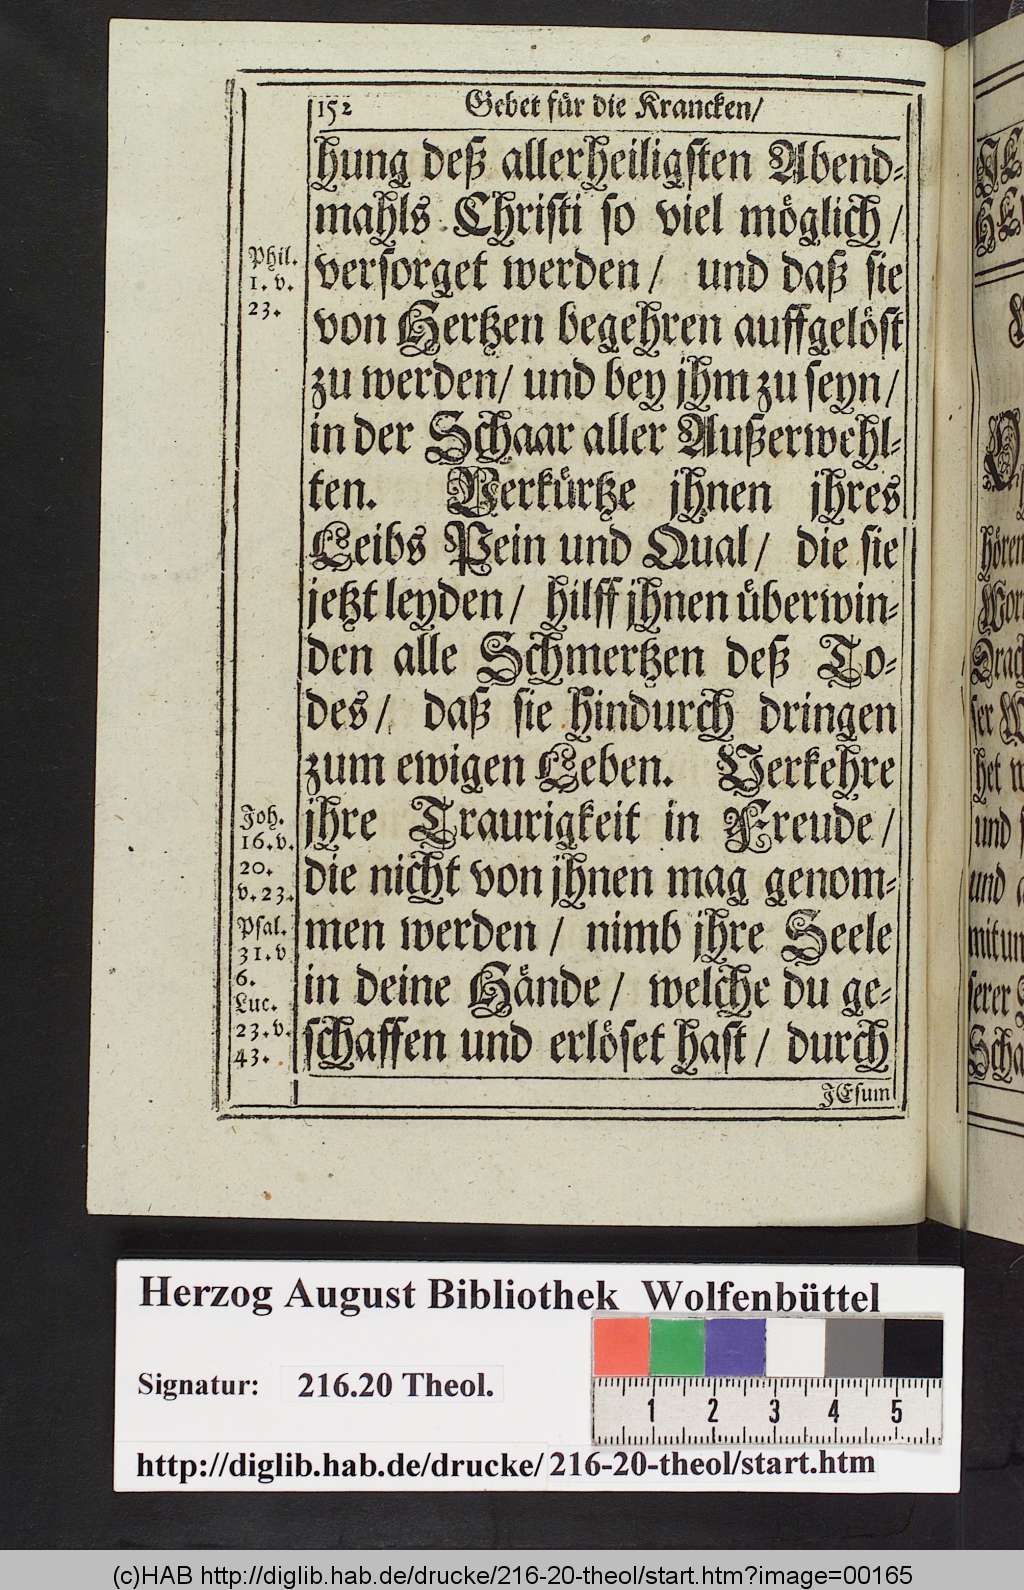 152 Gebet für die Krancken/
hung deß allerheiligsten Abend-
mahls Christi so viel möglich/
versorget werden/ und daß sie
von Hertzen begehren auffgelöst
zu werden/ und bey jhm zu seyn/
in der Schaar aller Außerwehl-
ten. Verkürtze jhnen jhres
Leibs Pein und Qual/ die sie
jetzt leyden/ hilff jhnen überwin-
den alle Schmertzen deß To-
des/ daß sie hindurch dringen
zum ewigen Leben. Verkehre
jhre Traurigkeit in Freude/
die nicht von jhnen mag genom-
men werden/ nimb jhre Seele
in deine Hände/ welche du ge-
schaffen und erlöset hast/ durch
JEsum
Phil.
1. v.
23.
Joh.
16. v.
20.
v. 23.
Psal.
31. v
6.
Luc.
23. v.
43.
hören
und
und
mit un
serer
Herzog August Bibliothek Wolfenbüttel
Signatur: 216.20 Theol.
1 2 3 4 5
http://diglib.hab.de/drucke/216-20-theol/start.htm
(c)HAB http://diglib.hab.de/drucke/216-20-theol/start.htm?image=00165